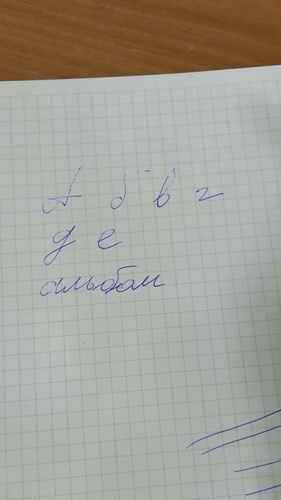 А б в г
д е
альбом